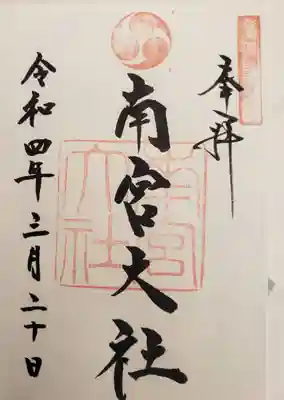 奉拝
南宮大社
令和四年三月二十日
南宮大社